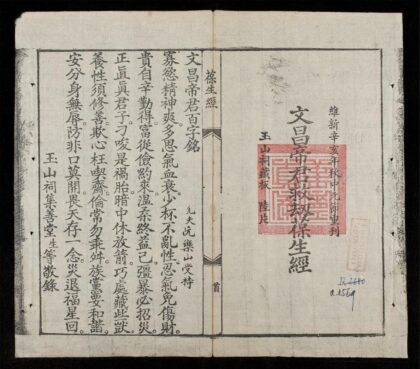 維新辛亥年秋中元節重刊
文昌帝君救劫葆生經
玉山祠藏板 陸片
葆生經
首
文昌帝君百字銘
允夫阮樂山受持
寡慾精神爽。多思氣血衰。少杯不亂性。忍氣免傷財。
貴自辛勤得。富從儉約來。溫柔終益己。彊暴必招災。
正直眞君子。刁唆是禍胎。暗中休放箭。巧處藏些獃。
養性須修善。欺心枉喫齋。倫常勿乖舛。族黨要和諧。
安分身無辱。防非口莫開。畏天存一念。災退福星回。
玉山祠集善堂生等敬錄